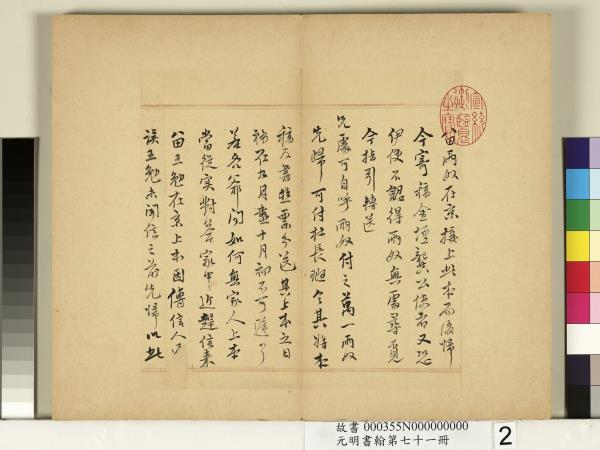 留兩奴在京接上此本而後歸
今寄稿金壇龔公使者又恐
伊使不認得兩奴無處尋覓
今指引轉送
先處可自呼兩奴付之萬一兩奴
先歸可付杜長班令其將本
稿及書照票分送其上本之日
務在九月盡十月初不可遲了
若各爺問如何無家人上本
當從實對答家中近趕信來
留王勉在京上本因傳信人
誤王勉未聞信之前先歸以此
故書 000355N000000000
元明書翰第七十一冊
2